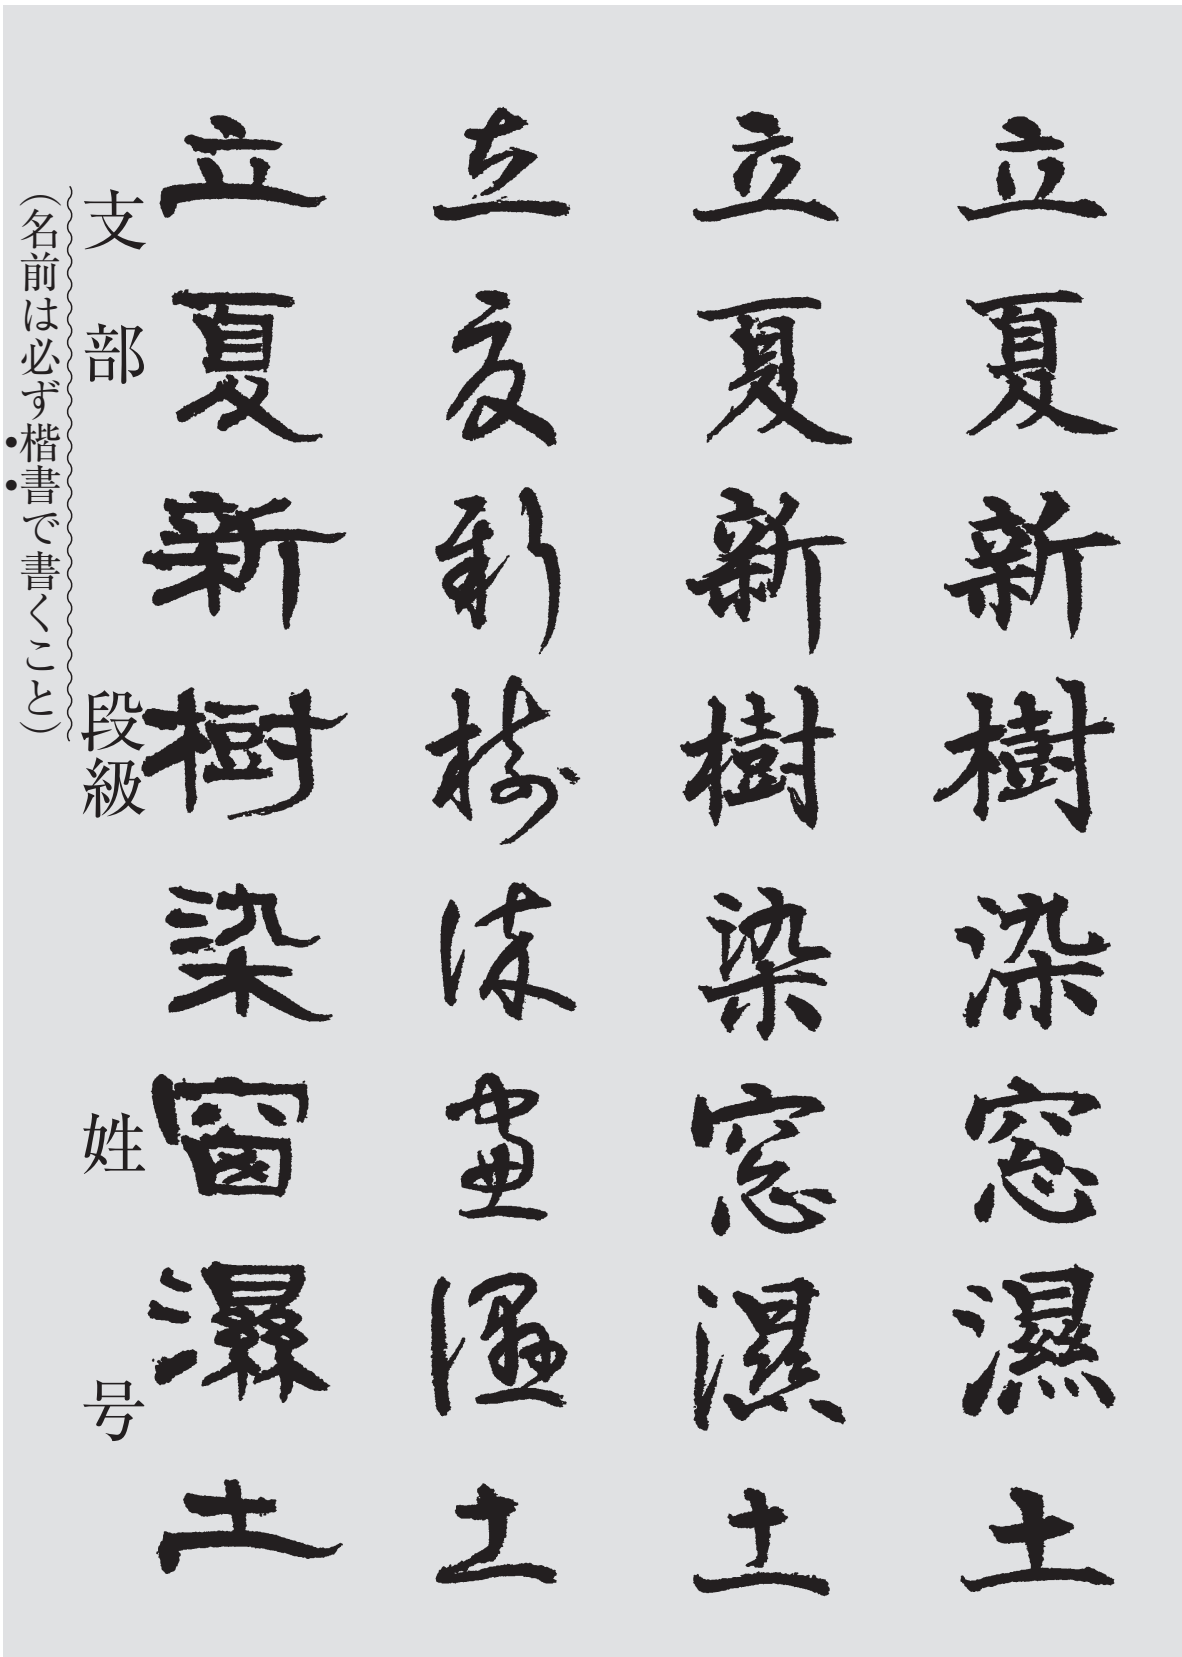 立夏新樹染窓濕土
立夏新樹染窓濕土
立夏新樹染窓濕土
立夏新樹染窗濕土
支部　段級　姓　号
（名前は必ず楷書で書くこと）